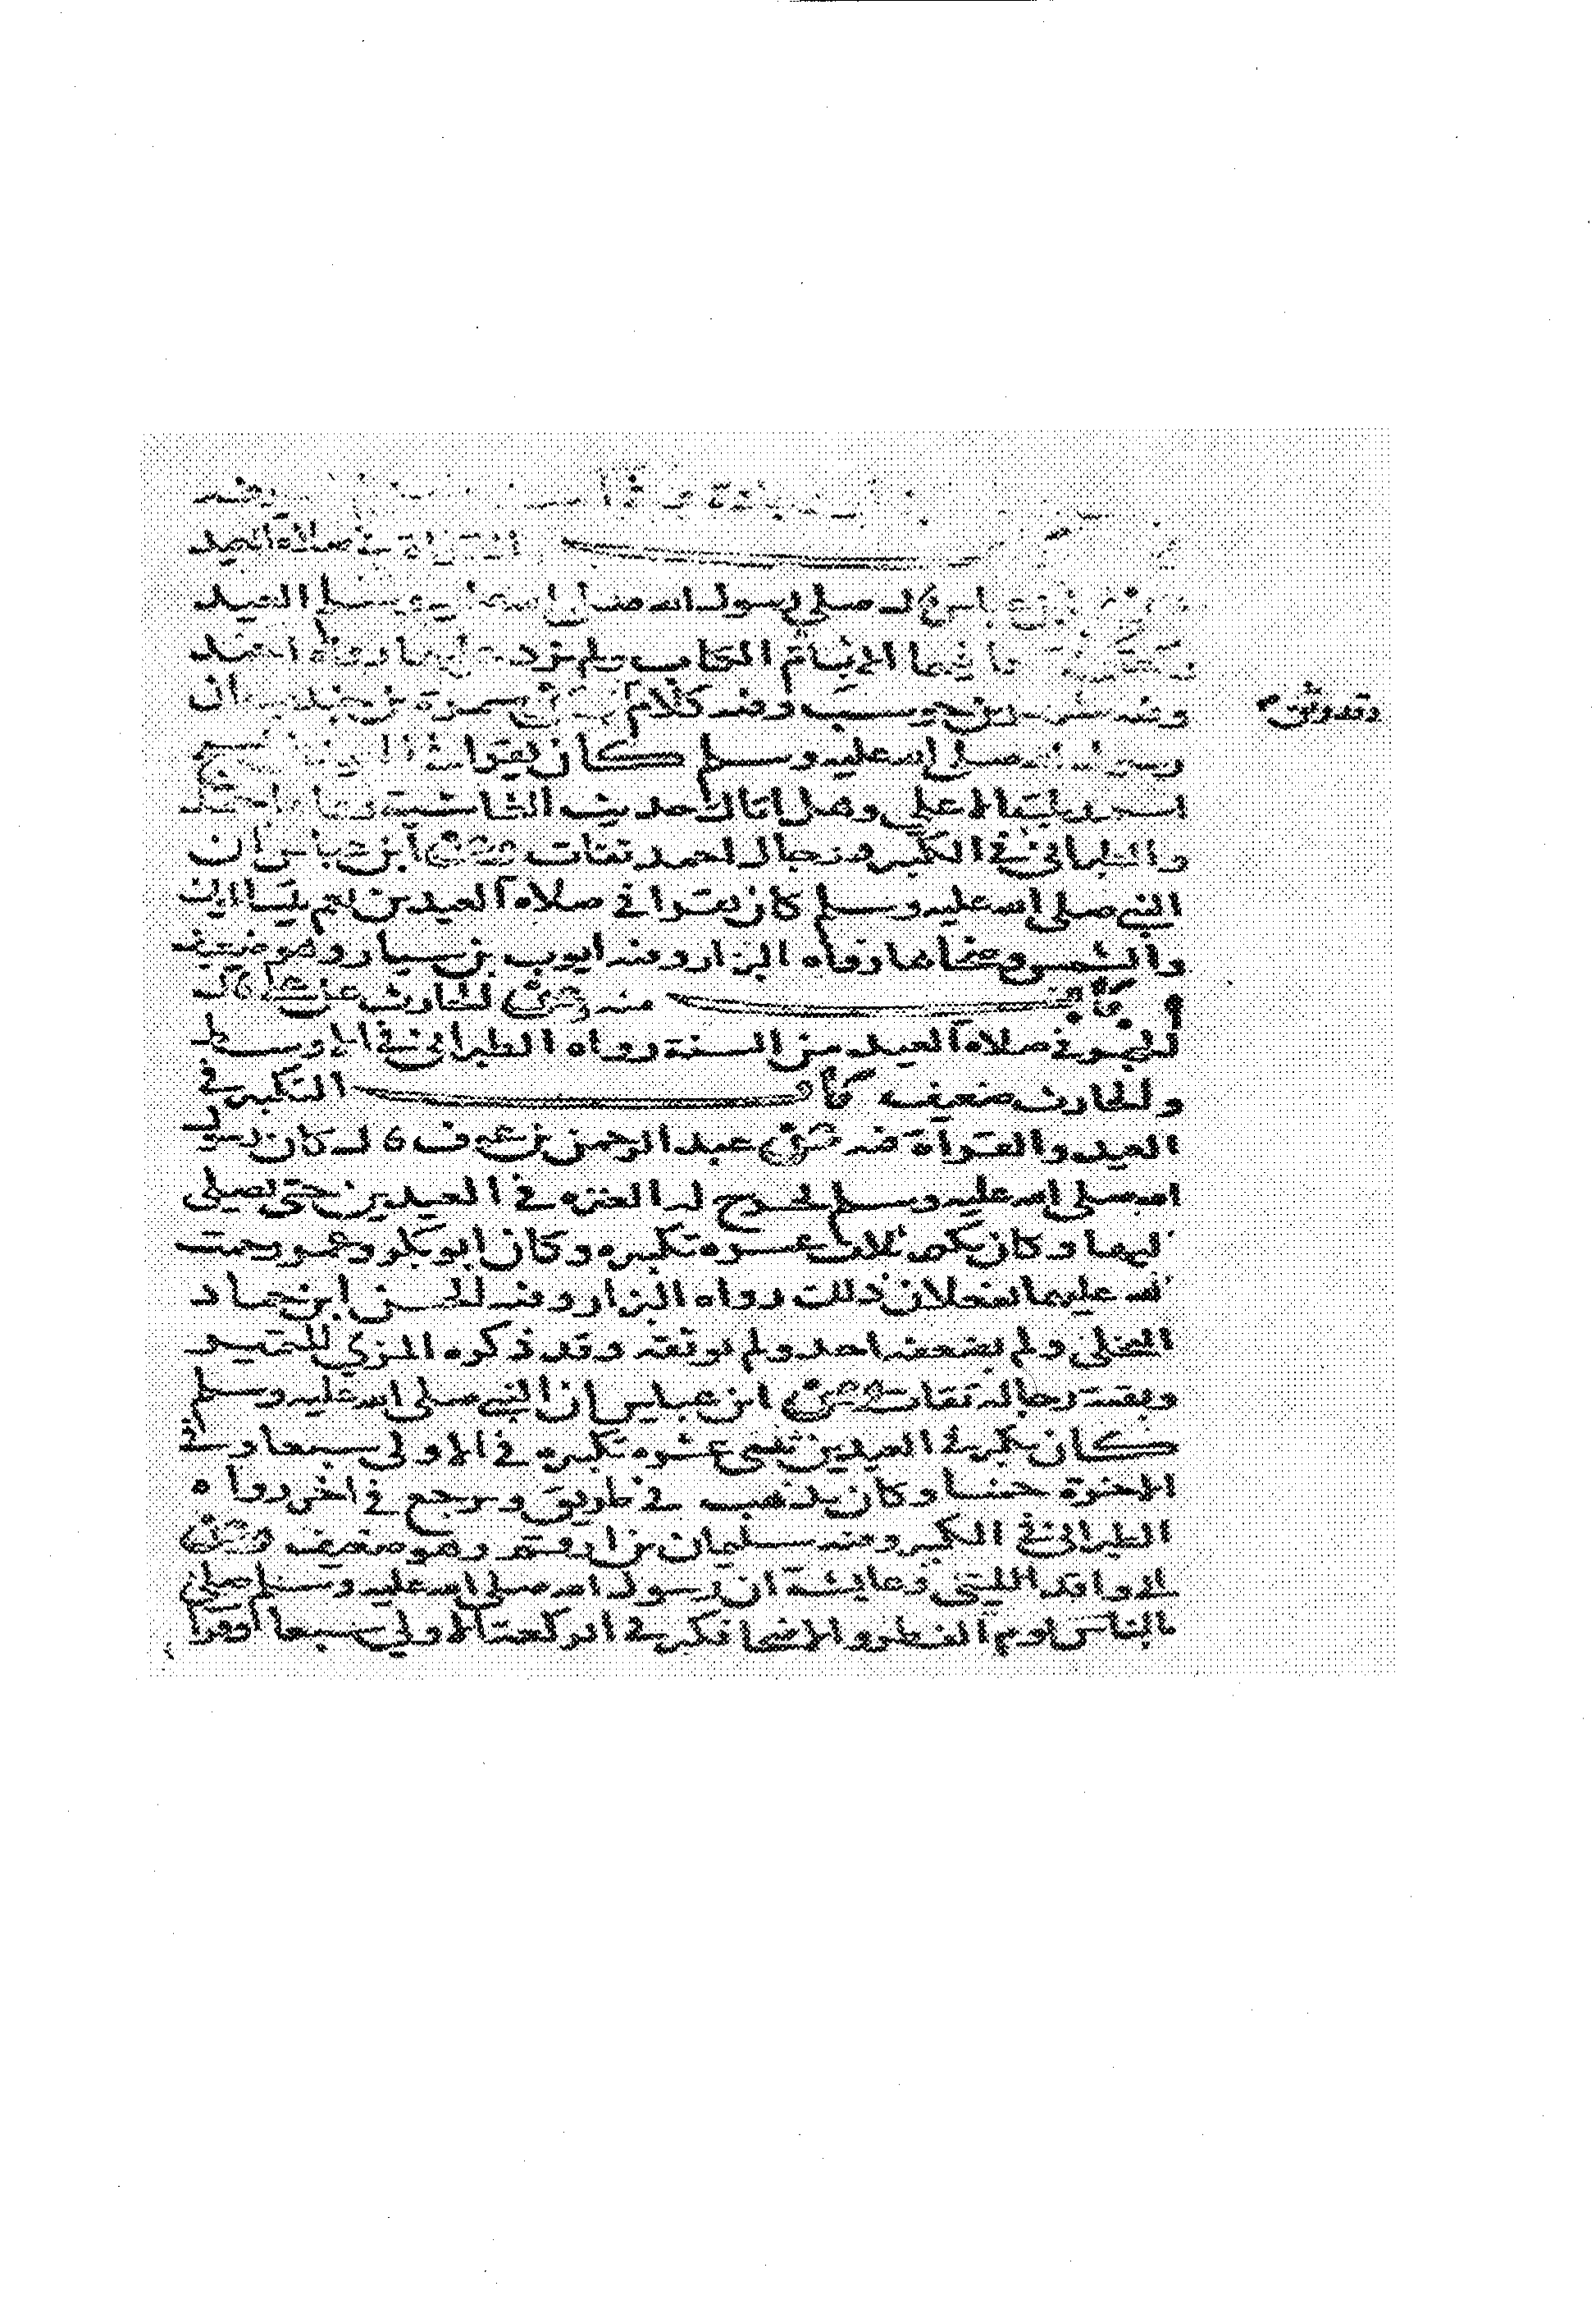 القراءة في صلاة العيد
ابن عباس قال صلى رسول الله صلى الله عليه وسلم العيد
ركعتين لا يقرا فيهما الا بام الكتاب لم يزد عليها رواه احمد
وفيه شهر بن حوشب وفيه كلام وعن سمرة بن جندب ان
وقد وثق
رسول الله صلى الله عليه وسلم كان يقرا في العيدين بسبح
اسم ربك الاعلى وهل اتاك حديث الغاشية رواه احمد
والطبراني في الكبير ورجال احمد ثقات وعن ابن عباس ان
النبي صلى الله عليه وسلم كان يقرا في صلاة العيدين بعم يتسالون
والشمس وضحاها رواه البزار وفيه ايوب بن سيار وهو ضعيف
باب منه وعن الحارث عن علي قال
الجهر في صلاة العيد من السنة رواه الطبراني في الاوسط
والحارث ضعيف باب التكبير في
العيد والقراة فيه عن عبد الرحمن بن عوف قال كان رسول
الله صلى الله عليه وسلم تخرج له العنزه في العيدين حتى يصلي
اليها وكان يكبر ثلاث عشره تكبيره وكان ابو بكر وعمر رحمت
الله عليهما يفعلان ذلك رواه البزار وفيه الحسن ابن حماد
البجلي ولم يضعفه احد ولم يوثقه وقد ذكره المزي للتمييز
وبقية رجاله ثقات وعن ابن عباس ان النبي صلى الله عليه وسلم
كان يكبر في العيدين ثنتى عشره تكبيره في الاولى سبعا وفي
الاخرة خمسا وكان يذهب في طريق ويرجع في اخر رواه
الطبراني في الكبير وفيه سليمان بن ارقم وهو ضعيف وعن
ابي واقد الليثي وعايشة ان رسول الله صلى الله عليه وسلم صلى
بالناس يوم الفطر والاضحا فكبر في الركعة الاولى سبعا وقرا